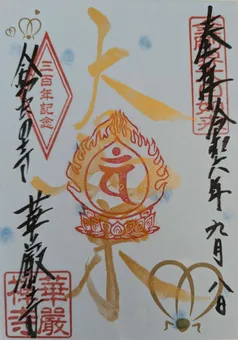 奉拝 令和六年 九月八日
三百年記念
鈴虫の寺 華嚴寺
華嚴
禅寺